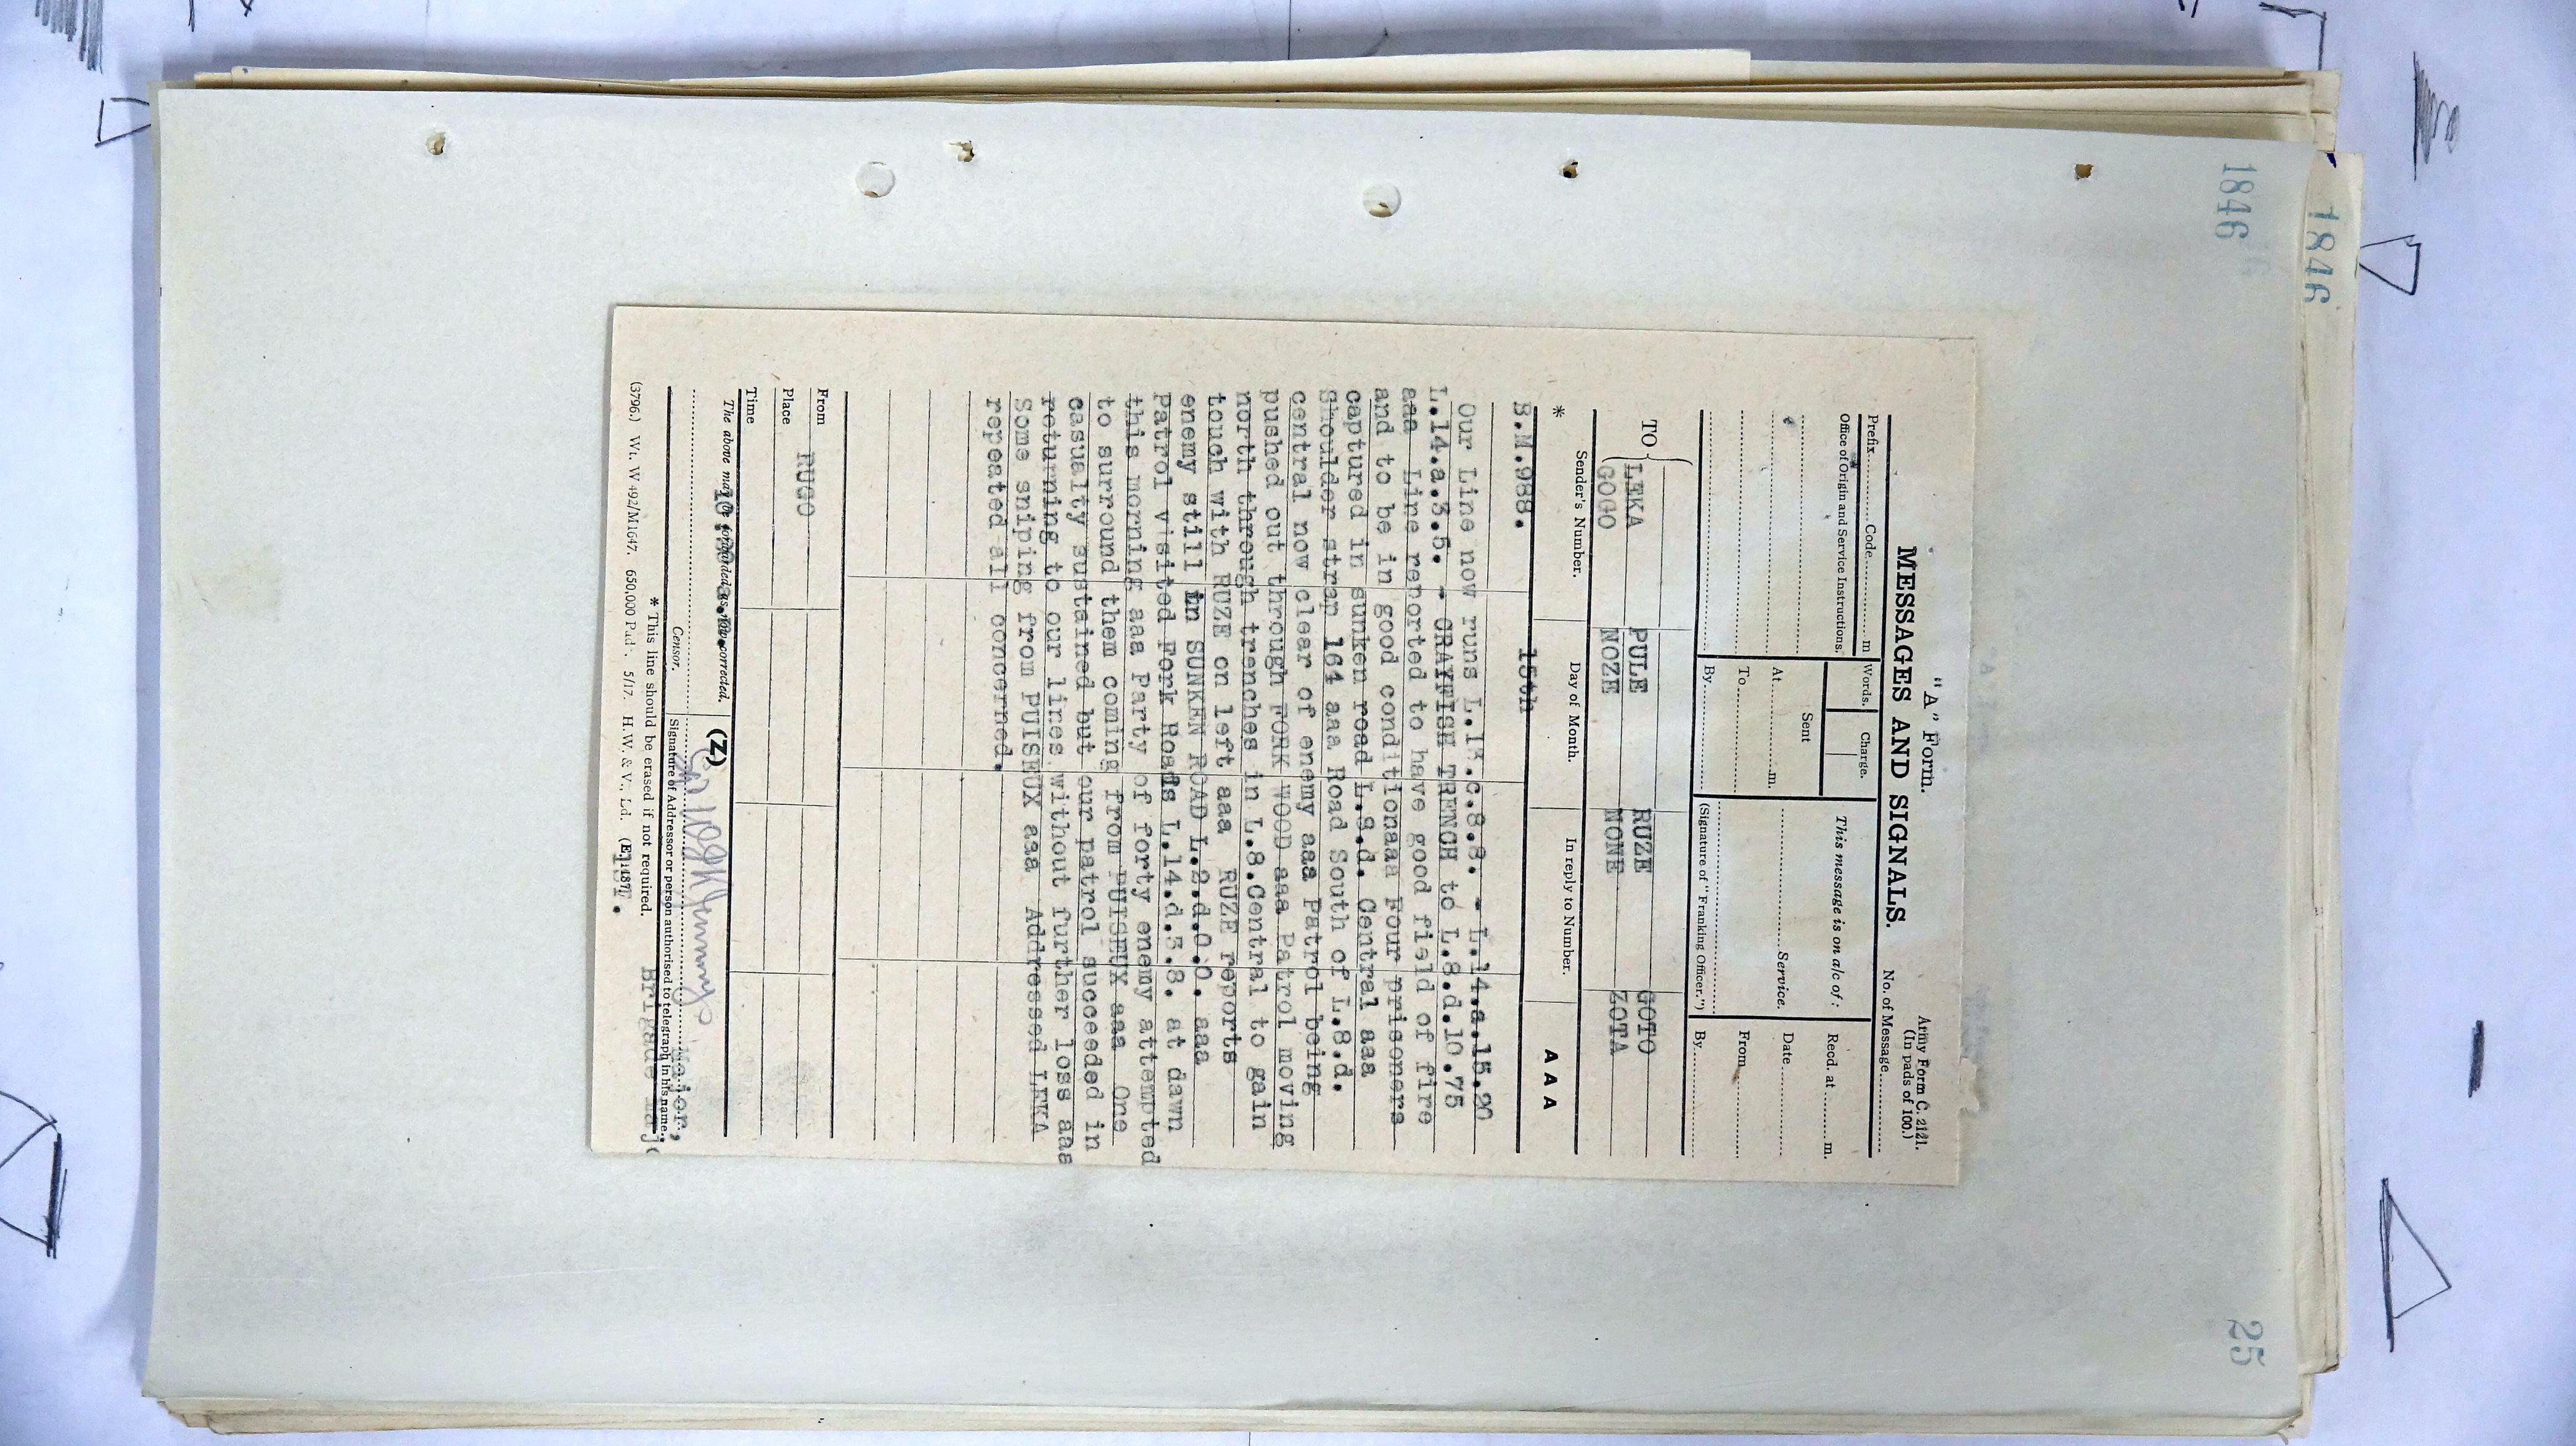 1846
1846
25
"A" Form.
Army Form C. 2121.
(In pads of 100.)
MESSAGES AND SIGNALS.
No. of Message
Prefix Code m
Words.
Charge.
This message is on a/c of:
Recd. at m.
Office of Origin and Service Instructions.
Sent
Service.
Date
At m.
From
To
By
(Signature of "Franking Officer.")
By
TO
LEKA PULE RUZE GOTO
GOGO NOZE NONE ZOTA
* Sender's Number. Day of Month. In reply to Number. AAA
B.M.988. 15th
Our Line now runs L.13.c.8.8. - L.14.a.15.20
L.14.a.3.5. - CRAYFISH TRENCH to L.8.d.10.75
aaa Line reported to have good field of fire
and to be in good conditionaaa Four prisoners
captured in sunken road L.8.d. Central aaa
Shoulder strap 164 aaa Road South of L.8.d.
central now clear of enemy aaa Patrol being
pushed out through FORK WOOD aaa Patrol moving
north through trenches in L.8.Central to gain
touch with RUZE on left aaa RUZE reports
enemy still in SUNKEN ROAD L.2.d.0.0. aaa
Patrol visited Fork Roads L.14.d.3.8. at dawn
this morning aaa Party of forty enemy attempted
to surround them coming from PUISEUX aaa One
casualty sustained but our patrol succeeded in
returning to our lines without further loss aaa
Some sniping from PUISEUX aaa Addressed LEKA
repeated all concerned.
From RUGO
Place
Time
The above may be forwarded as now corrected. (Z)
Major,
Censor.
Signature of Addressor or person authorised to telegraph in his name.
* This line should be erased if not required.
Brigade
(3796.) Wt. W 492/M1647. 650,000 Pads. 5/17. H.W. & V., Ld. (E. 1187).